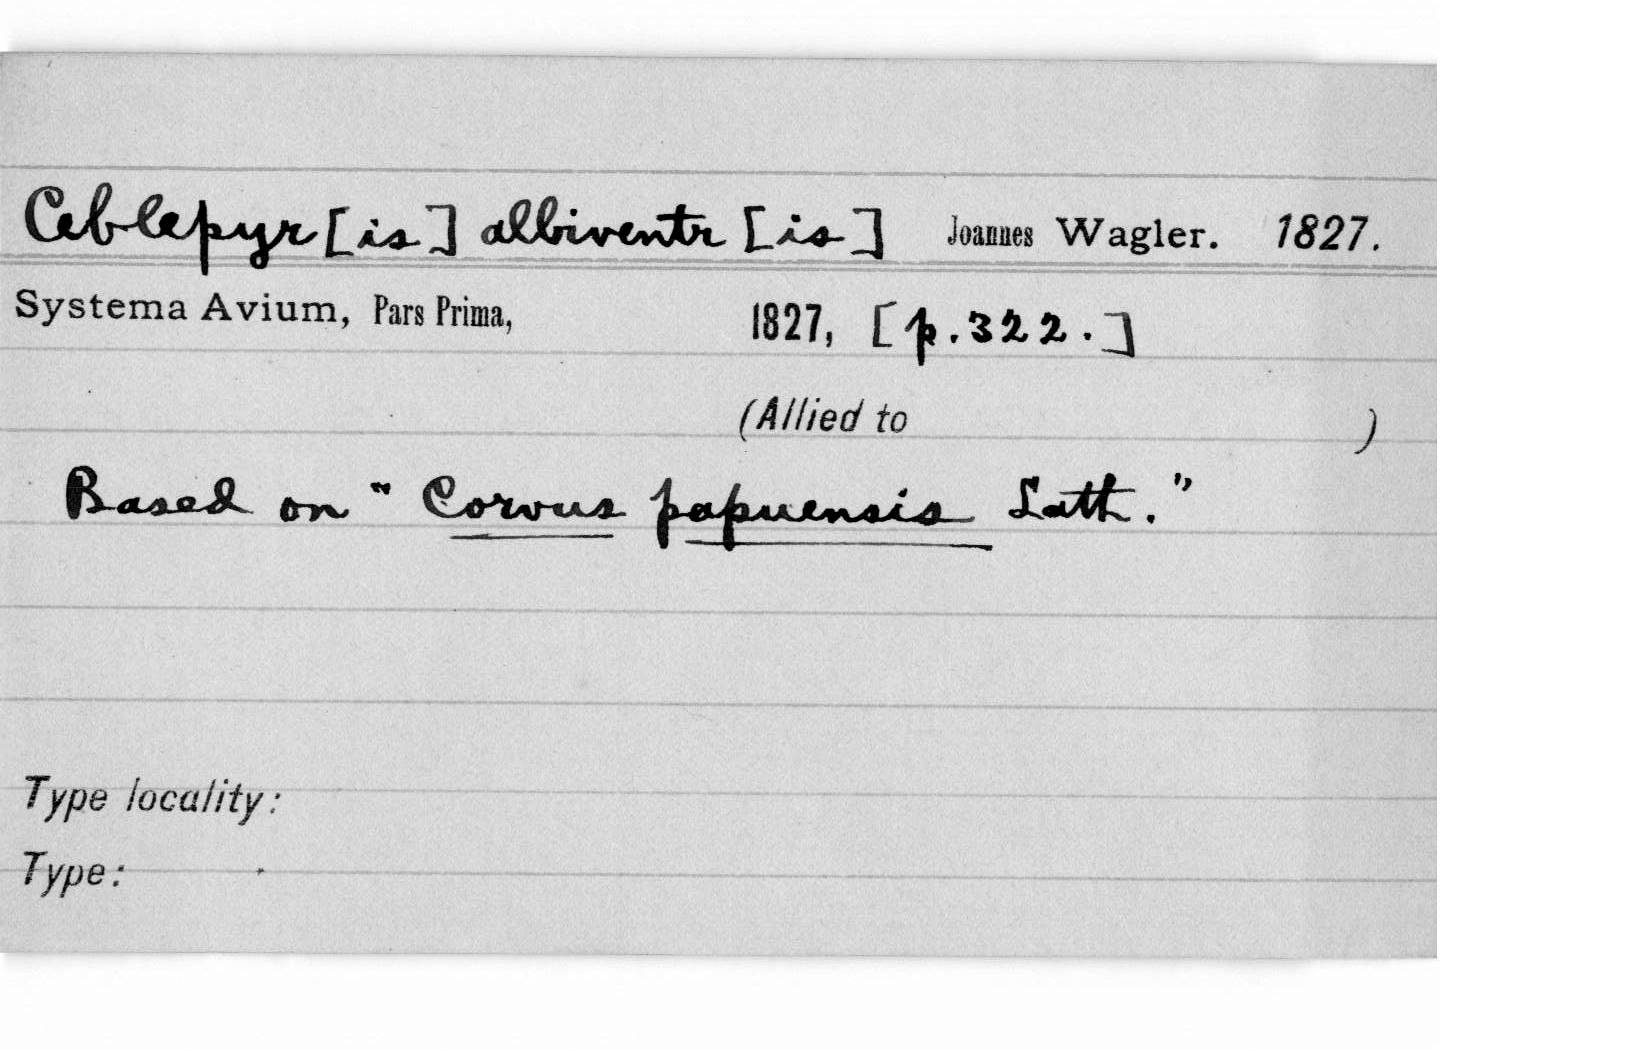 Ceblepyr [is] albiventr [is] Joannes Wagler. 1827.
Systema Avium, Pars Prima, 1827, [p.322.]
(Allied to )
Based on "Corvus papuensis Lath."
Type locality:
Type: